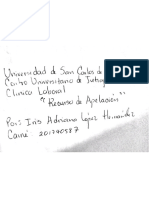 Universidad de San Carlos de
Centro Universitario de
Clínica Laboral
"Recurso de Apelación"
Por: Iris Adriana López Hernández
Carné: 201790587